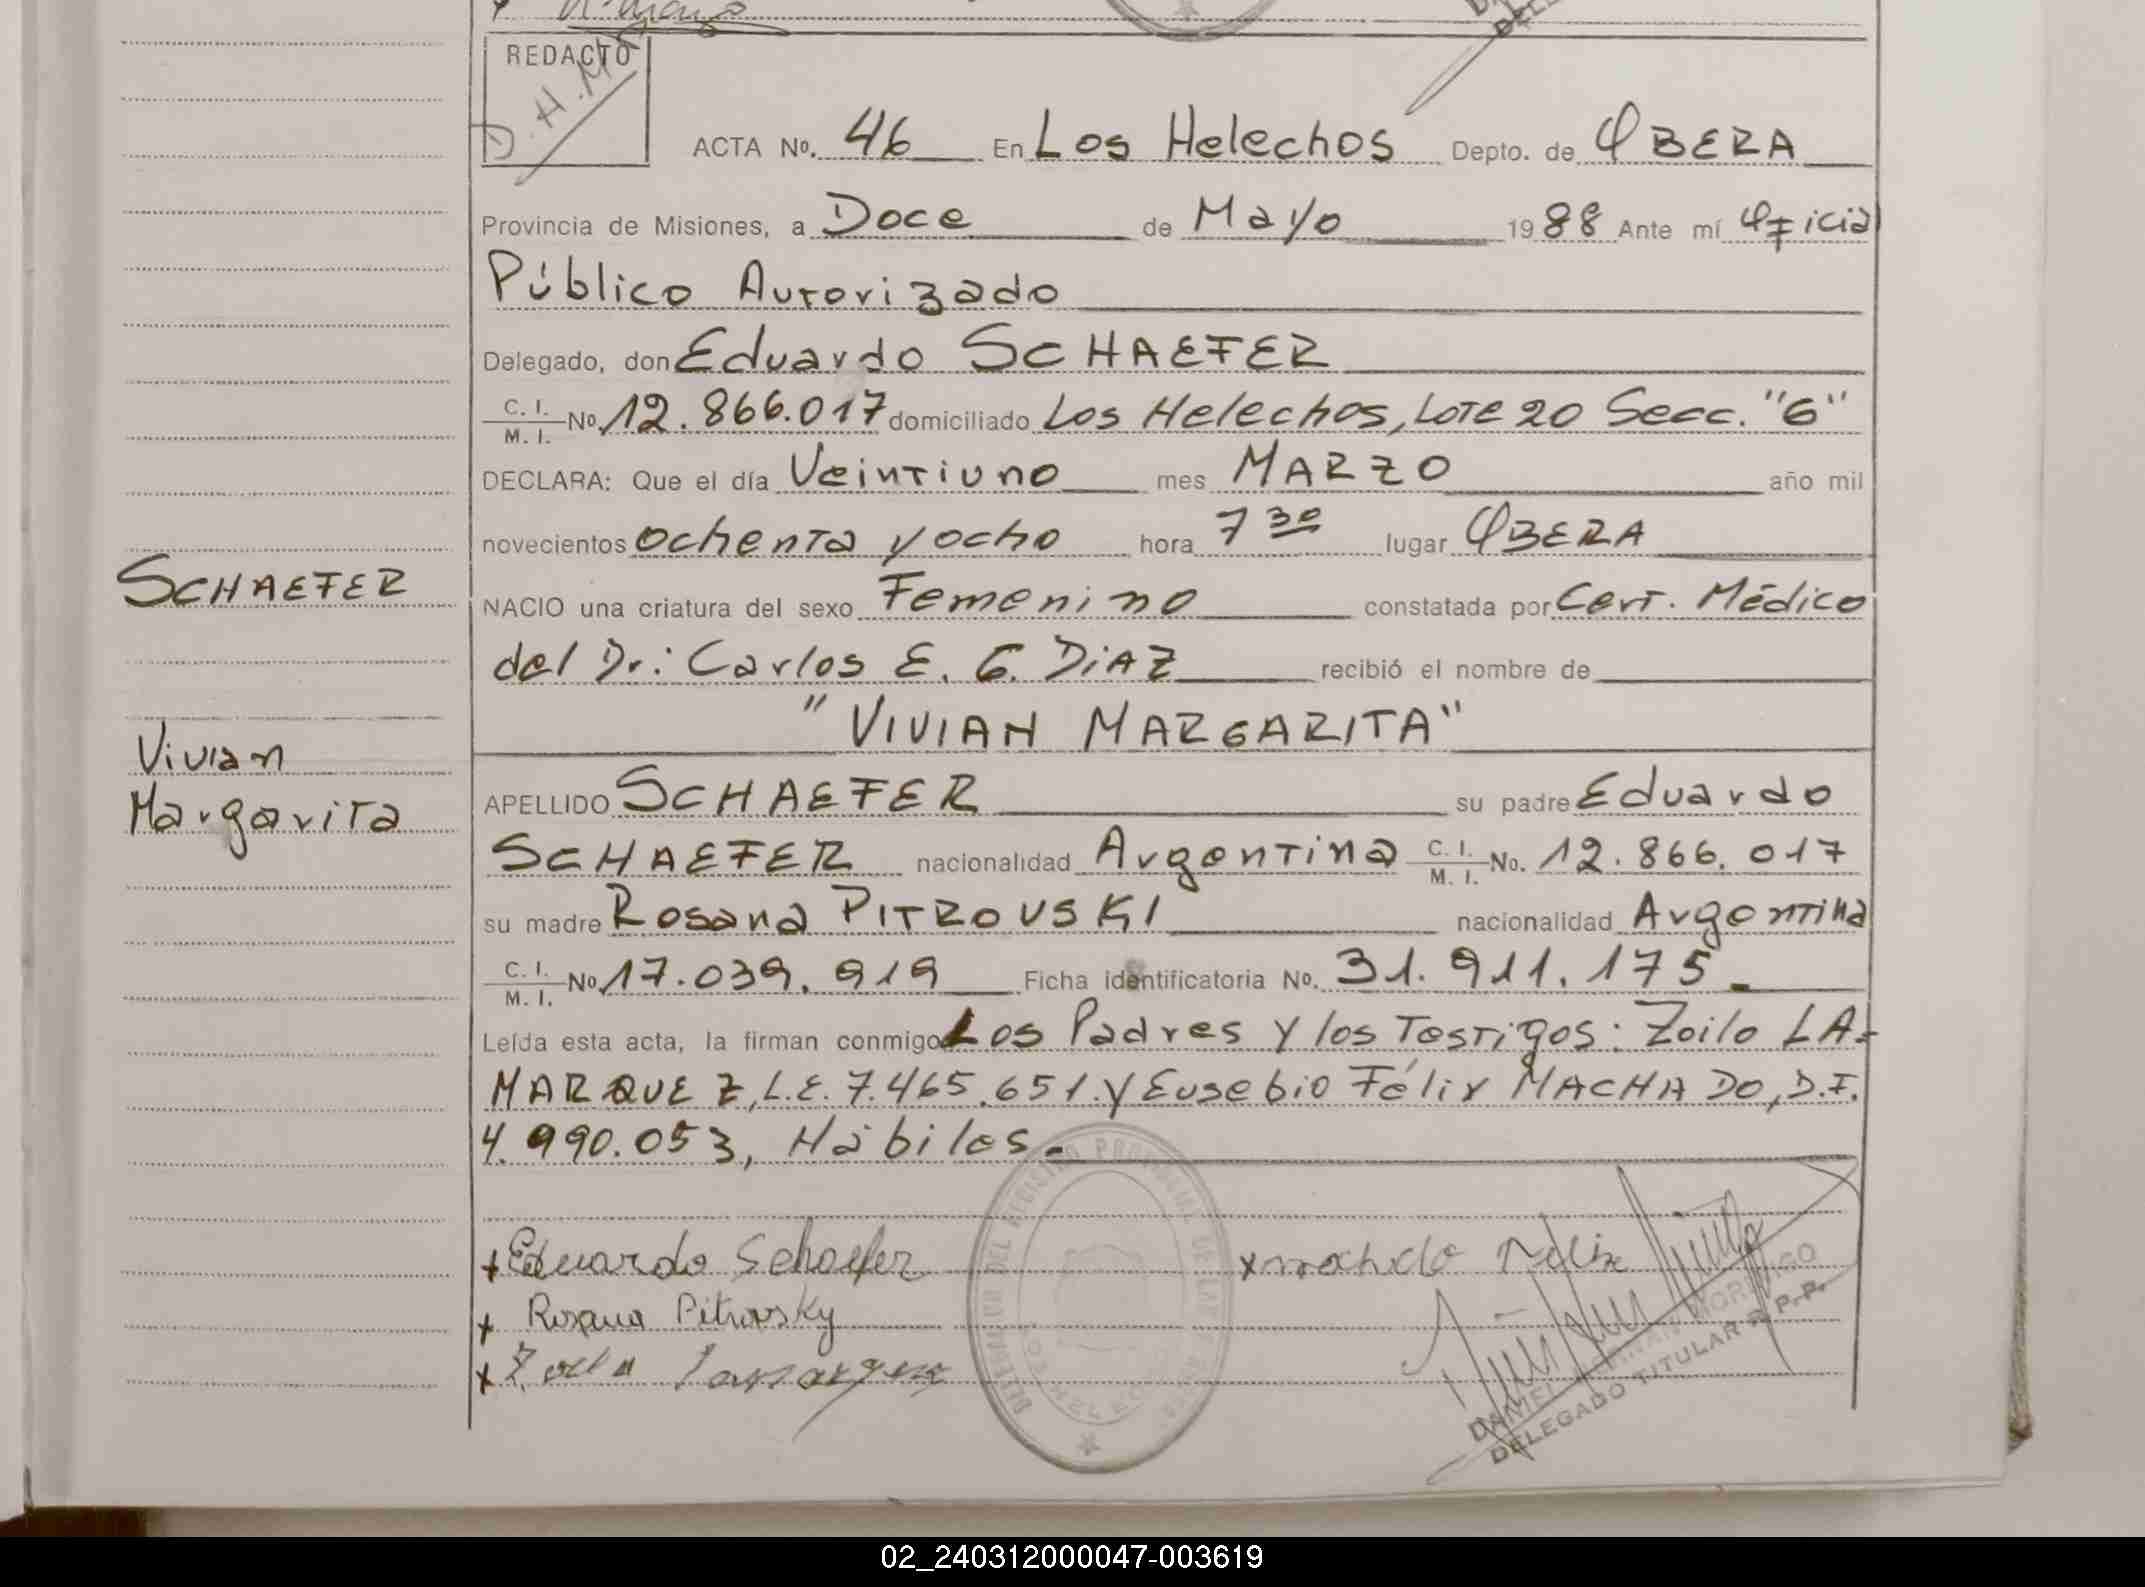 REDACTO
D.H.M
ACTA No. 46 En Los Helechos Depto. de OBERA
Provincia de Misiones, a Doce de Mayo 1988 Ante mí Oficial
Público Autorizado
Delegado, don Eduardo SCHAEFER
C. I. / M. I. No 12.866.017 domiciliado Los Helechos, LOTE 20 Secc. "G"
DECLARA: Que el día Veintiuno mes MARZO año mil
novecientos ochenta y ocho hora 7 30 lugar OBERA
NACIO una criatura del sexo Femenino constatada por Cert. Médico
del Dr: Carlos E. G. DIAZ recibió el nombre de
"VIVIAN MARGARITA"
APELLIDO SCHAEFER su padre Eduardo
SCHAEFER nacionalidad Argentina C. I. / M. I. No. 12.866.017
su madre Rosana PITROVSKI nacionalidad Argentina
C. I. / M. I. No 17.039.919 Ficha identificatoria No. 31.911.175.
Leída esta acta, la firman conmigo Los Padres y los Testigos: Zoilo LA=
MARQUEZ, L.E. 7.465.651. y Eusebio Félix MACHADO, D.I.
4.990.053, Hábiles.-
SCHAEFER
Vivian
Margarita
+ Eduardo Schaefer
x machado Felix
+ Rosana Pitrovsky
x
DELEGADO TITULAR R.P.P.
02_240312000047-003619